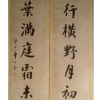 行橫野月初
葉滿庭霜未